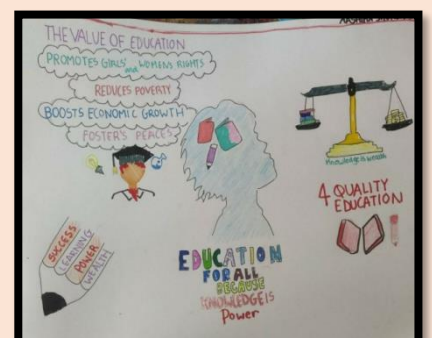 THE VALUE OF EDUCATION
PROMOTES GIRLS' and WOMENS RIGHTS
REDUCES POVERTY
BOOSTS ECONOMIC GROWTH
FOSTER'S PEACES
Knowledge is wealth
4 QUALITY
EDUCATION
SUCCESS
LEARNING
POWER
WEALTH
EDUCATION
FOR ALL
BECAUSE
KNOWLEDGE IS
Power